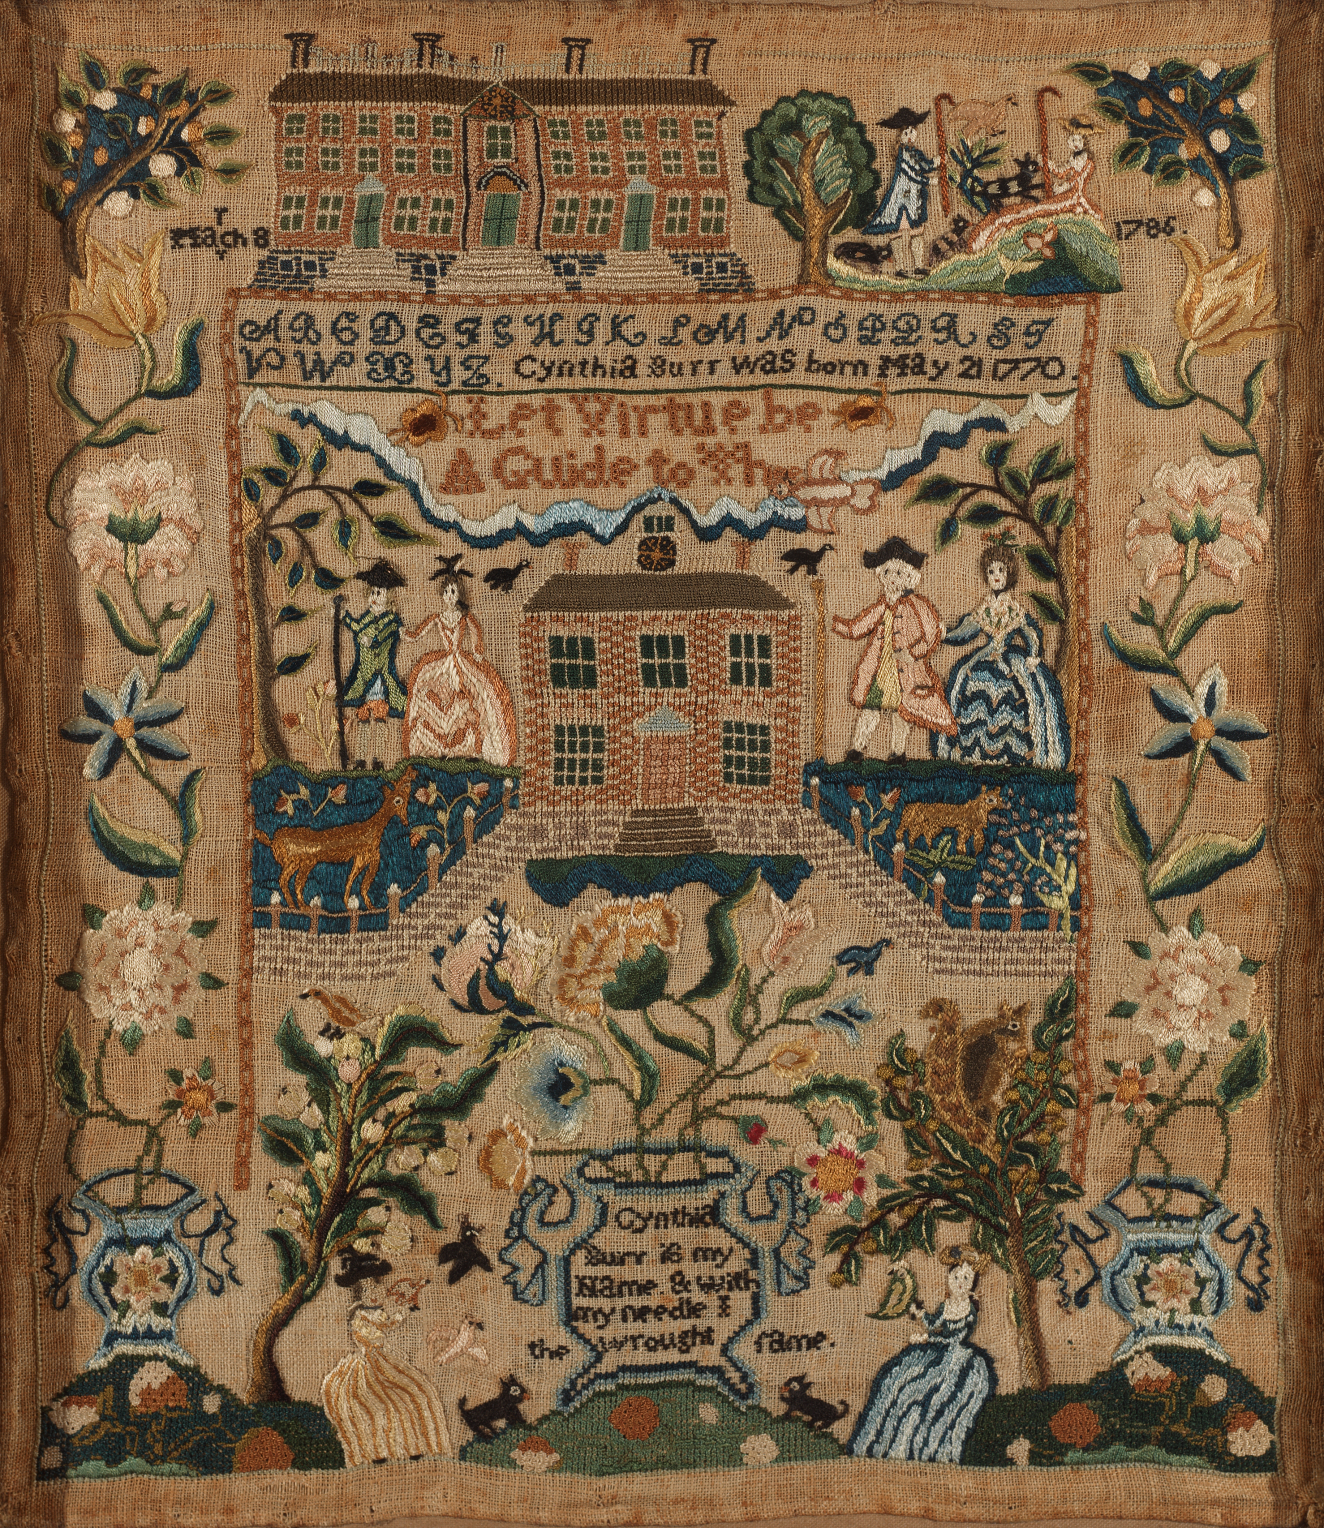 March 8
1786.
A B C D E F G H I K L M N O P Q R S T
V W X Y Z. Cynthia Burr was born May 21 1770.
Let Virtue be
A Guide to The
Cynthia
Burr is my
Name & with
my needle I
the wrought fame.